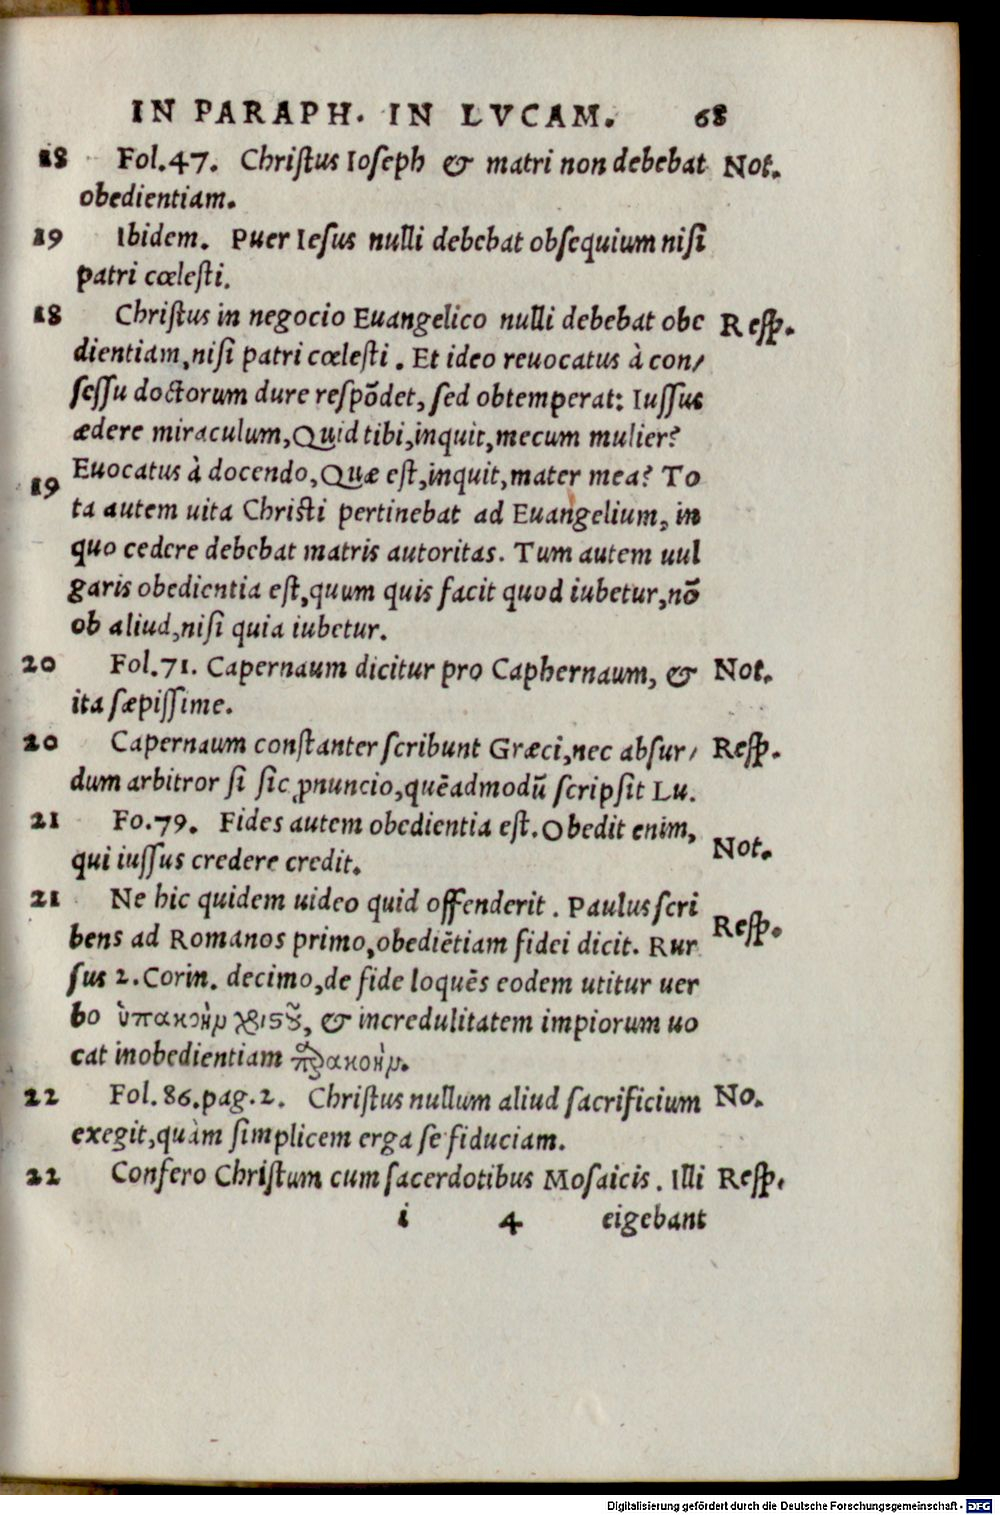 IN PARAPH. IN LVCAM. 68
18 Fol.47. Christus Ioseph & matri non debebat Not.
obedientiam.
19 Ibidem. Puer Iesus nulli debebat obsequium nisi
patri cœlesti.
18 Christus in negocio Euangelico nulli debebat obe Resp.
dientiam,nisi patri cœlesti. Et ideo reuocatus à con/
sessu doctorum dure respōdet, sed obtemperat: Iussus
ædere miraculum,Quid tibi,inquit,mecum mulier?
19 Euocatus à docendo,Quæ est,inquit,mater mea? To
ta autem uita Christi pertinebat ad Euangelium, in
quo cedere debebat matris autoritas. Tum autem uul
garis obedientia est,quum quis facit quod iubetur,nō
ob aliud,nisi quia iubetur.
20 Fol.71. Capernaum dicitur pro Caphernaum, & Not.
ita sæpissime.
20 Capernaum constanter scribunt Græci,nec absur/ Resp.
dum arbitror si sic ꝓnuncio,quēadmodū scripsit Lu.
21 Fo.79. Fides autem obedientia est.Obedit enim, Not.
qui iussus credere credit.
21 Ne hic quidem uideo quid offenderit. Paulus scri Resp.
bens ad Romanos primo,obediētiam fidei dicit. Rur
sus 2.Corin. decimo,de fide loquēs eodem utitur uer
bo ὑπακοὴν χριστοῦ, & incredulitatem impiorum uo
cat inobedientiam παρακοὴν.
22 Fol.86.pag.2. Christus nullum aliud sacrificium No.
exegit,quàm simplicem erga se fiduciam.
22 Confero Christum cum sacerdotibus Mosaicis. Illi Resp.
i 4 eigebant
Digitalisierung gefördert durch die Deutsche Forschungsgemeinschaft - DFG